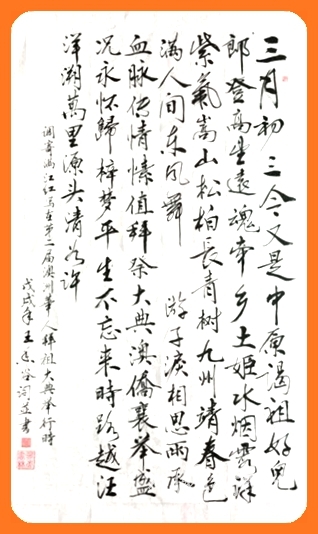 三月初三今又是中原谒祖好儿
郎登高望远魂牵乡土姬水烟霞祥
紫氣嵩山松柏長青树九州靖春色
满人间东风舞 游子淚相思雨承
血脉传情愫值拜祭大典澳僑襄举盛
况永怀歸梓梦平生不忘来時路越汪
洋溯萬里源头清如许
调寄满江红写在第二届澳州華人拜祖大典举行時
戊戌年王谷词并書